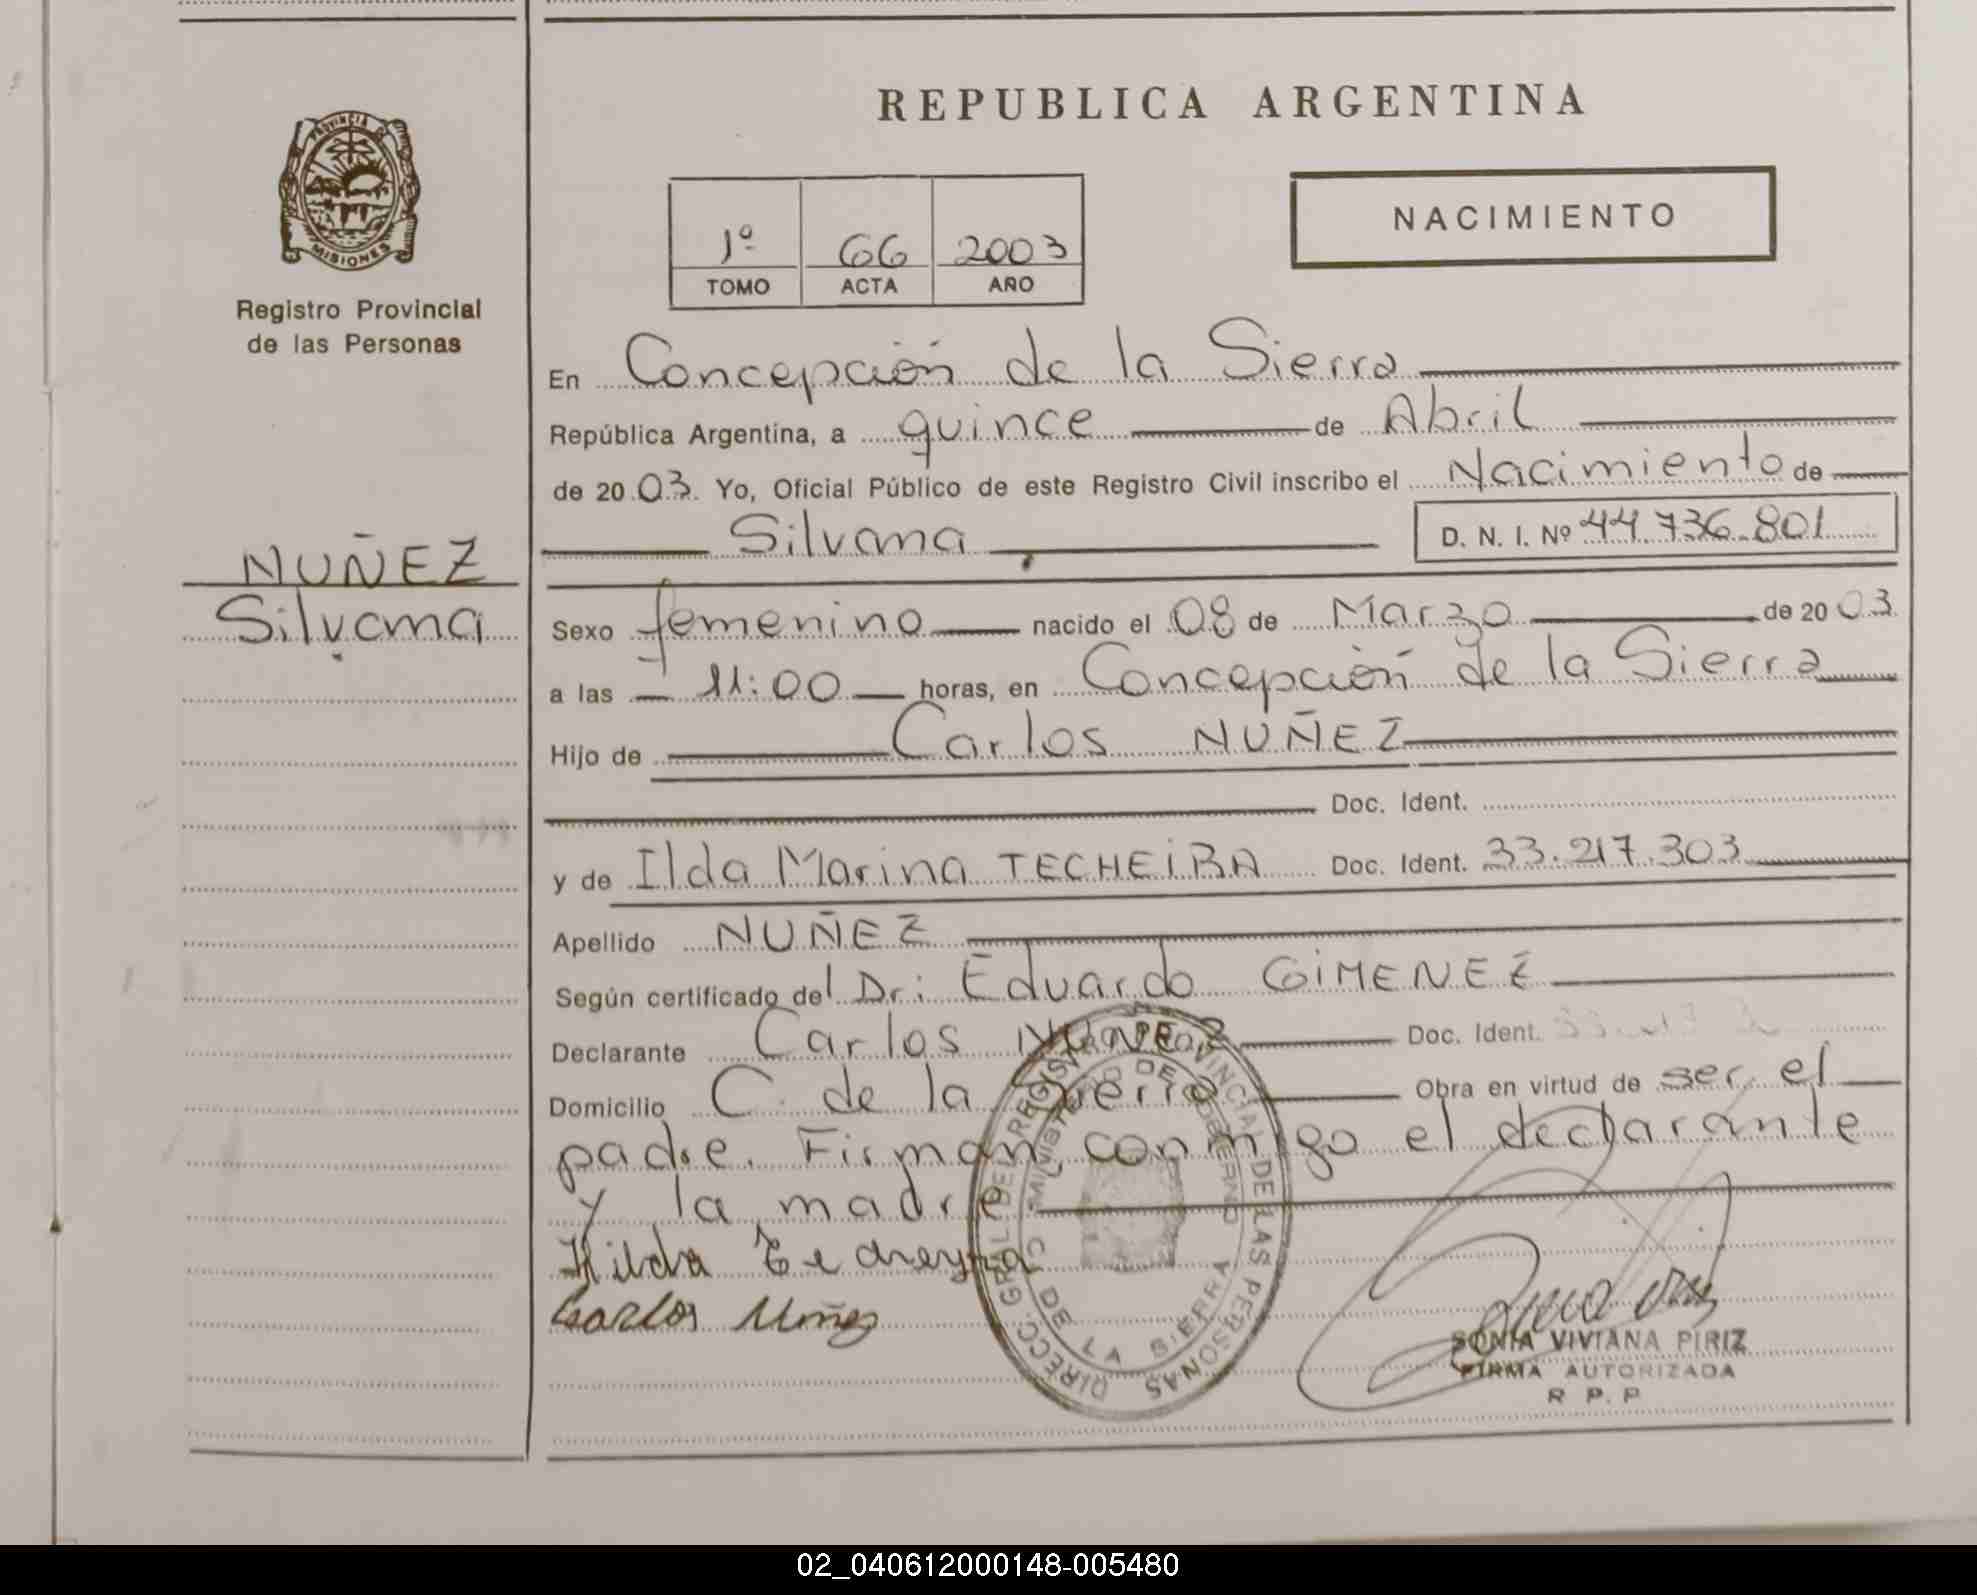 REPUBLICA ARGENTINA
PROVINCIA DE
MISIONES
Registro Provincial
de las Personas
1º 66 2003
TOMO ACTA AÑO
NACIMIENTO
En Concepción de la Sierra
República Argentina, a quince de Abril
de 2003. Yo, Oficial Público de este Registro Civil inscribo el Nacimiento de
Silvana D. N. I. Nº 44.736.801
NUÑEZ
Silvana
Sexo femenino nacido el 08 de Marzo de 2003
a las 11:00 horas, en Concepción de la Sierra
Hijo de Carlos NUÑEZ
Doc. Ident.
y de Ilda Marina TECHEIRA Doc. Ident. 33.217.303
Apellido NUÑEZ
Según certificado del Dr: Eduardo GIMENEZ
Declarante Carlos NUÑEZ Doc. Ident.
Domicilio C. de la Sierra Obra en virtud de ser el
padre. Firman conmigo el declarante
y la madre
Hilda
Carlos Nuñez
DIRECC. GRAL. DEL REGISTRO PROVINCIAL DE LAS PERSONAS
MINISTERIO DE GOBIERNO
DE LA SIERRA
SONIA VIVIANA PIRIZ
FIRMA AUTORIZADA
R. P. P.
02_040612000148-005480